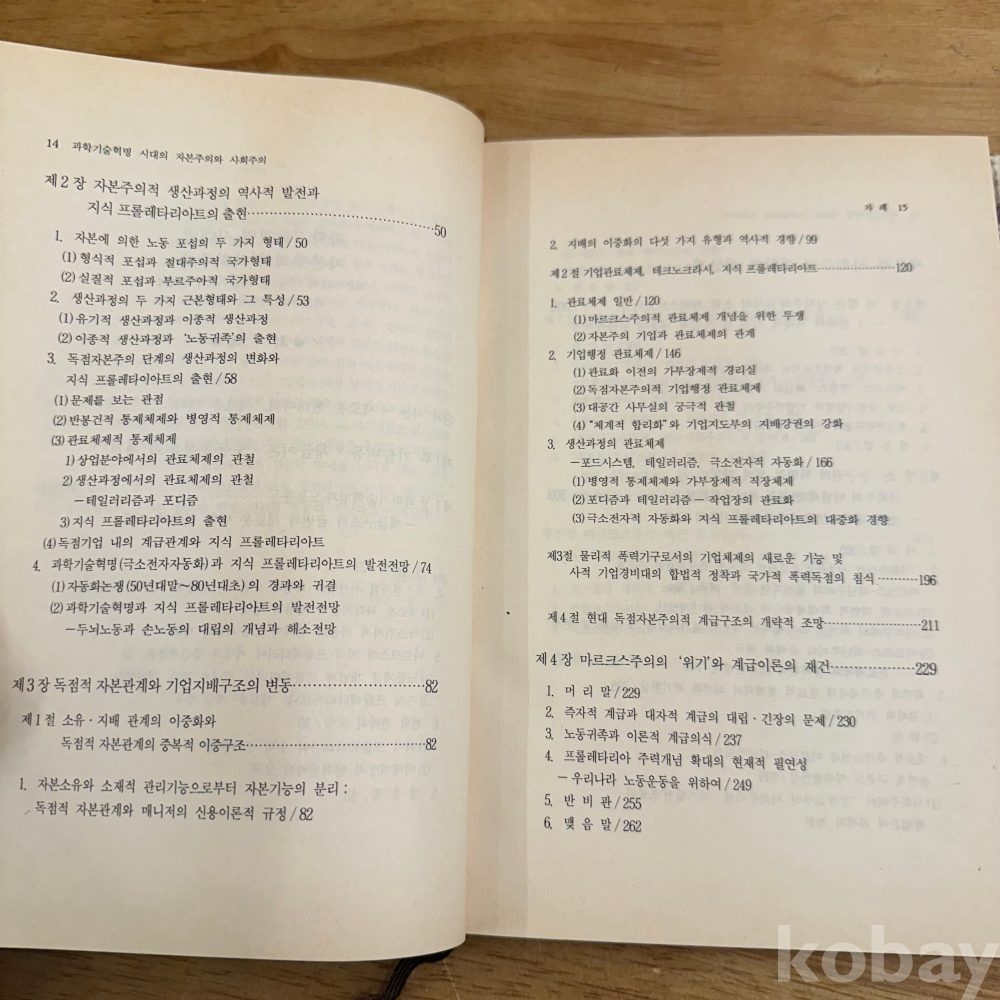 14 과학기술혁명 시대의 자본주의와 사회주의
제2장 자본주의적 생산과정의 역사적 발전과
지식 프롤레타리아트의 출현 50
1. 자본에 의한 노동 포섭의 두 가지 형태/50
(1) 형식적 포섭과 절대주의적 국가형태
(2) 실질적 포섭과 부르주아적 국가형태
2. 생산과정의 두 가지 근본형태와 그 특성/53
(1) 유기적 생산과정과 이종적 생산과정
(2) 이종적 생산과정과 '노동귀족'의 출현
3. 독점자본주의 단계의 생산과정의 변화와
지식 프롤레타이아트의 출현/58
(1) 문제를 보는 관점
(2) 반봉건적 통제체제와 병영적 통제체제
(3) 관료체제적 통제체제
1) 상업분야에서의 관료체제의 관철
2) 생산과정에서의 관료체제의 관철
-테일러리즘과 포디즘
3) 지식 프롤레타리아트의 출현
(4) 독점기업 내의 계급관계와 지식 프롤레타리아트
4. 과학기술혁명(극소전자자동화)과 지식 프롤레타리아트의 발전전망/74
(1) 자동화논쟁(50년대말~80년대초)의 경과와 귀결
(2) 과학기술혁명과 지식 프롤레타리아트의 발전전망
-두뇌노동과 손노동의 대립의 개념과 해소전망
제3장 독점적 자본관계와 기업지배구조의 변동 82
제1절 소유·지배 관계의 이중화와
독점적 자본관계의 중복적 이중구조 82
1. 자본소유와 소재적 관리기능으로부터 자본기능의 분리:
독점적 자본관계와 매니저의 신용이론적 규정/82
차례 15
2. 지배의 이중화의 다섯 가지 유형과 역사적 경향/99
제2절 기업관료체제, 테크노크라시, 지식 프롤레타리아트 120
1. 관료체제 일반/120
(1) 마르크스주의적 관료체제 개념을 위한 투쟁
(2) 자본주의 기업과 관료체제의 관계
2. 기업행정 관료체제/146
(1) 관료화 이전의 가부장제적 경리실
(2) 독점자본주의적 기업행정 관료체제
(3) 대공간 사무실의 궁극적 관철
(4) "체계적 합리화"와 기업지도부의 지배강권의 강화
3. 생산과정의 관료체제
-포드시스템, 테일러리즘, 극소전자적 자동화/166
(1) 병영적 통제체제와 가부장제적 직장체제
(2) 포디즘과 테일러리즘-작업장의 관료화
(3) 극소전자적 자동화와 지식 프롤레타리아트의 대중화 경향
제3절 물리적 폭력기구로서의 기업체제의 새로운 기능 및
사적 기업경비대의 합법적 정착과 국가적 폭력독점의 침식 196
제4절 현대 독점자본주의적 계급구조의 개략적 조망 211
제4장 마르크스주의의 '위기'와 계급이론의 재건 229
1. 머리말/229
2. 즉자적 계급과 대자적 계급의 대립·긴장의 문제/230
3. 노동귀족과 이론적 계급의식/237
4. 프롤레타리아 주력개념 확대의 현재적 필연성
-우리나라 노동운동을 위하여/249
5. 반비판/255
6. 맺음말/262
kobay